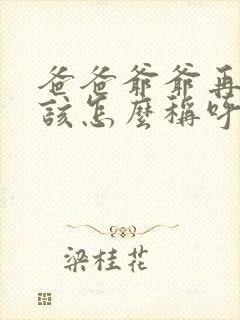 爸爸爺爺再
該怎麼稱呼
梁桂花